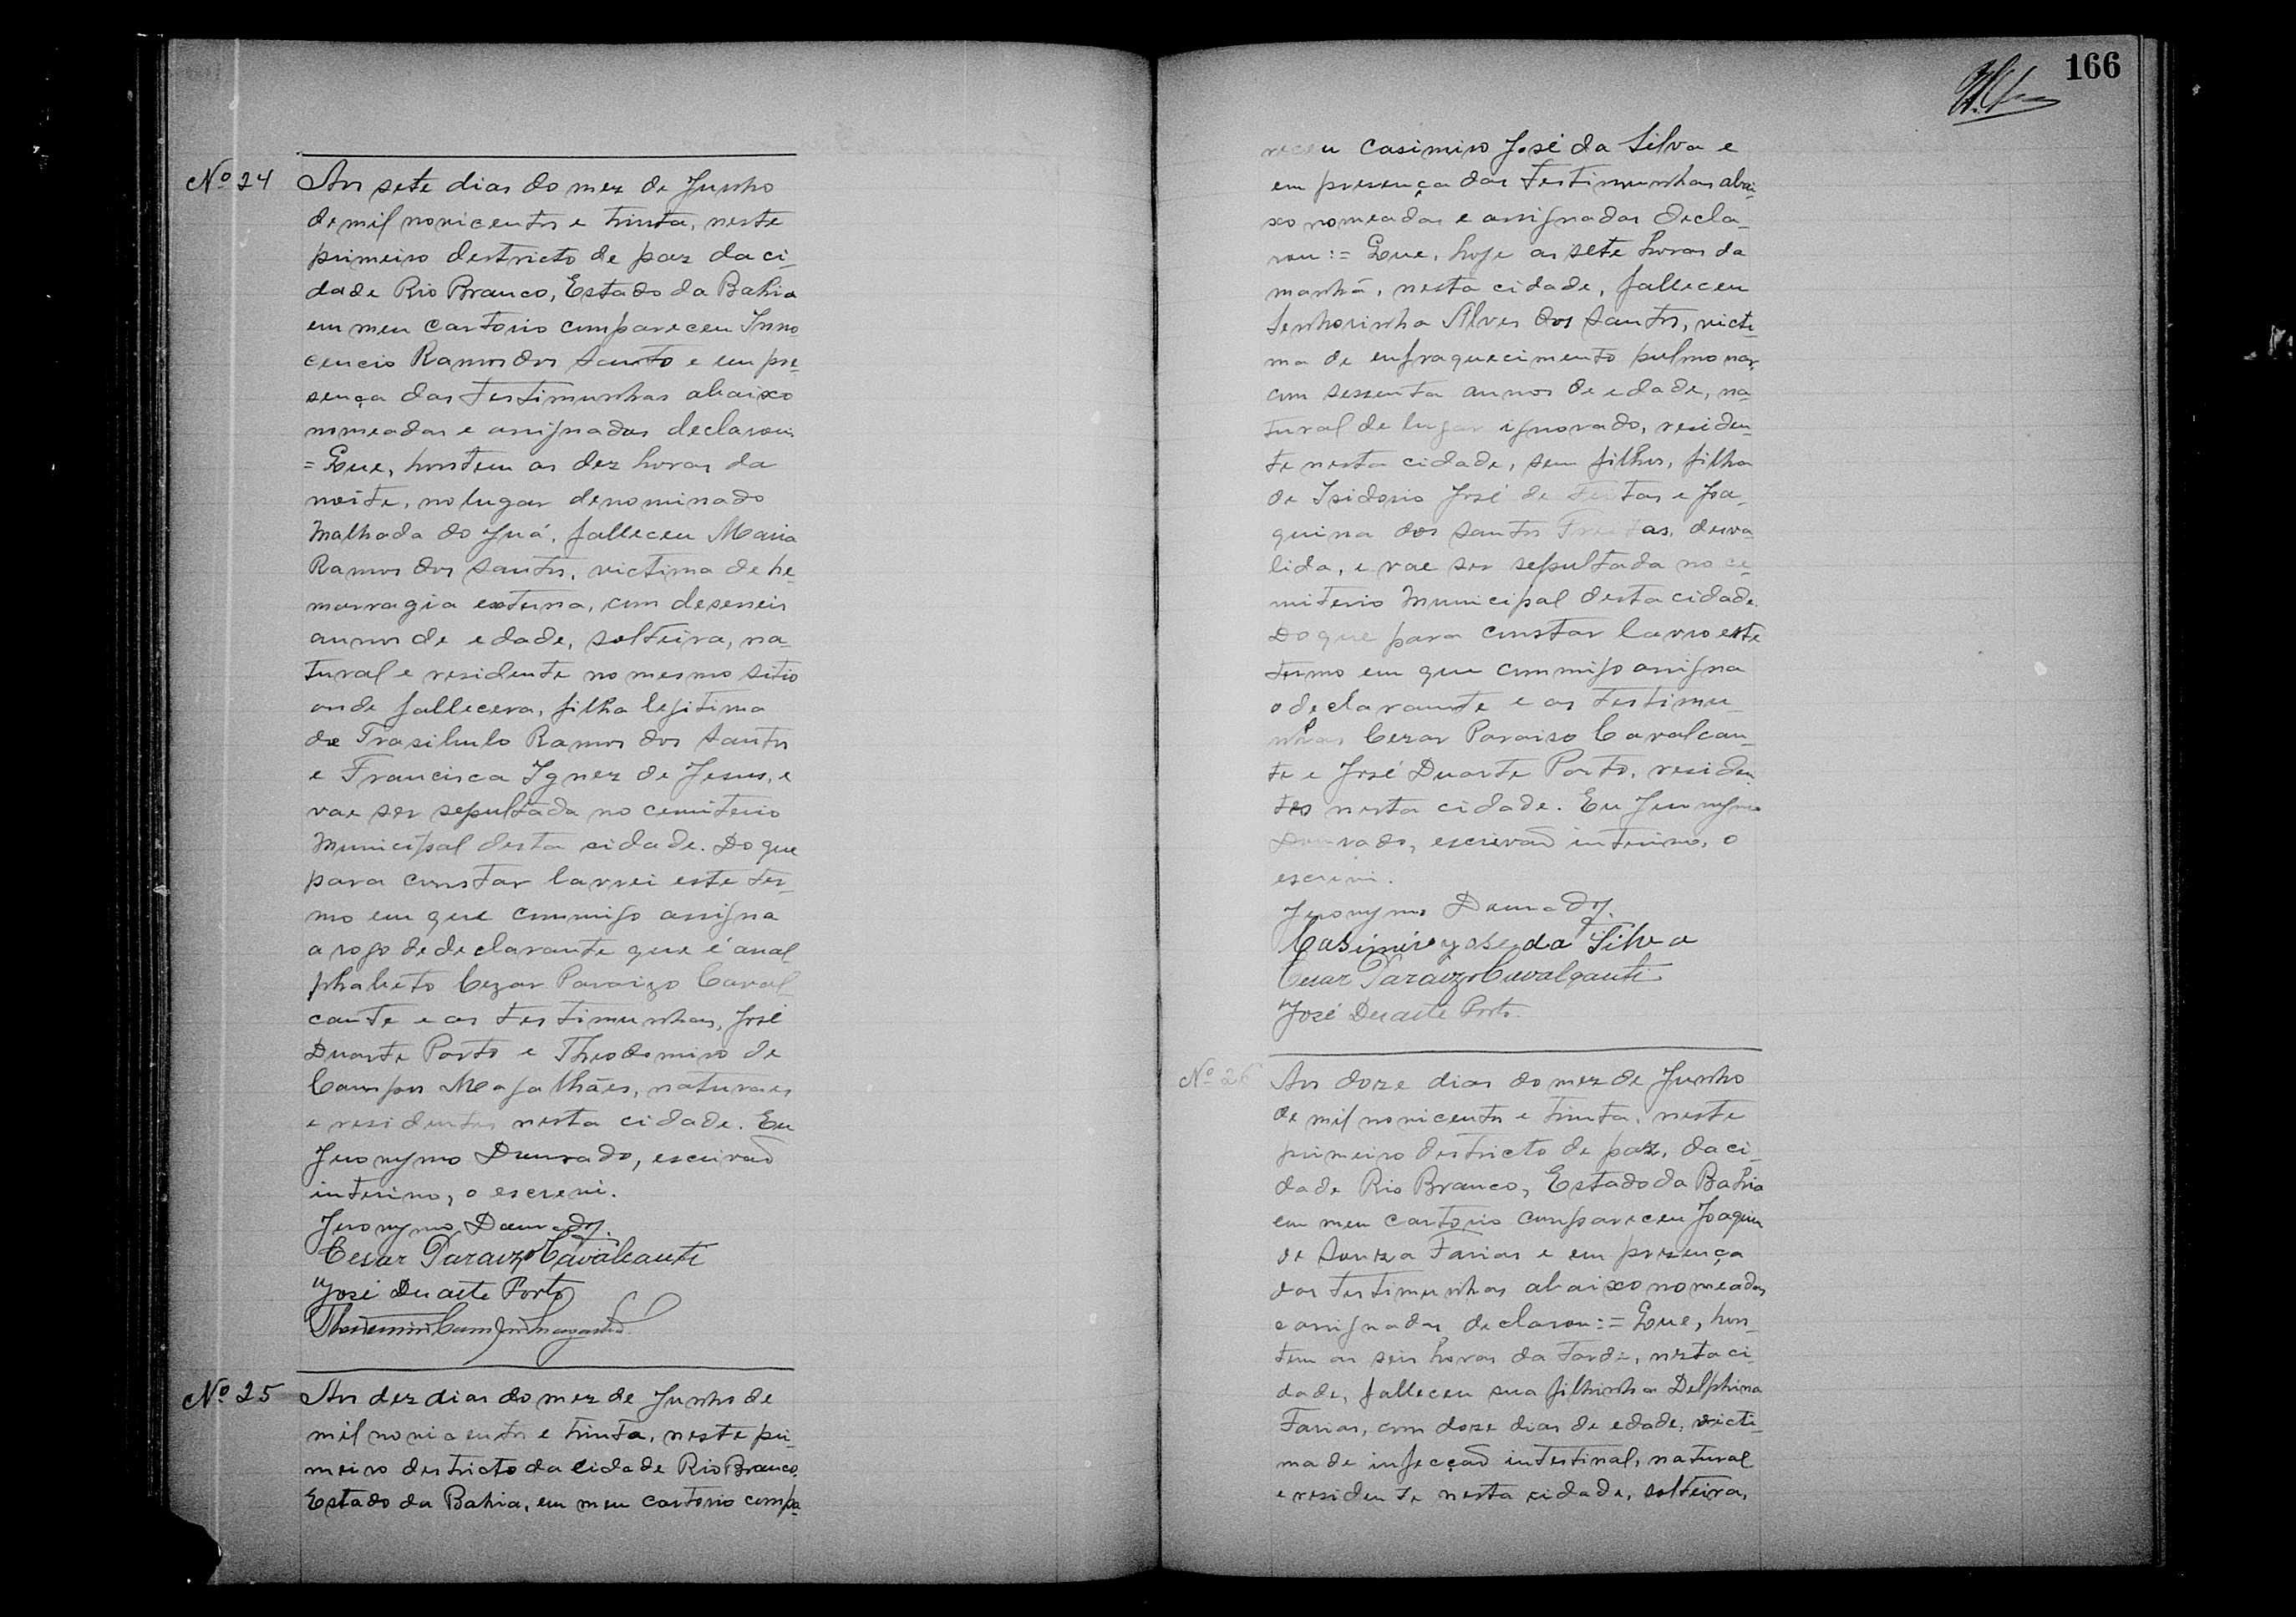 Nº 24 Aos sete dias do mez de Junho
de mil novicentos e trinta, neste
primeiro destricto de paz da ci-
dade Rio Branco, Estado da Bahia
em meu cartorio compareceu Inno
cencio Ramos dos Santo e em pre-
sença das testimunhas abaixo
nomeadas e assignadas declarou:
= Que, hontem as dez horas da
noite, no lugar denominado
Malhada do Juá, falleceu Maria
Ramos dos Santos, victima de he-
morragia externa, com deseseis
annos de edade, solteira, na-
tural e residente no mesmo sitio
onde fallecera, filha legitima
de Trasibulo Ramos dos Santos
e Francisca Ignez de Jesus, e
vae ser sepultada no cemiterio
Municipal desta cidade. Do que
para constar lavrei este ter-
mo em que commigo assigna
a rogo de declarante que é anal
phabeto Cezar Paraizo Caval
cante e as testimunhas, José
Duarte Porto e Theodomiro de
Campos Magalhães, naturaes
e residentes nesta cidade. Eu
Jeronymo Dourado, escrivaõ
interino, o escrevi.
Jeronymo Dourado
Cesar Paraizo Cavalcanti
José Duarte Porto
Nº 25 Aos dez dias do mez de Junho de
mil novicentos e trinta, neste pri-
meiro destricto da cidade Rio Branco,
Estado da Bahia, em meu cartorio compa-
166
receu Casimiro José da Silva e
em presença das testimunhas abai-
xo nomeadas e assignadas decla-
rou:= Que, hoje as sete horas da
manhã, nesta cidade, falleceu
Senhorinha Alves dos Santos, victi
ma de enfraquecimento pulmonar,
com sessenta annos de edade, na-
tural de lugar ignorado, residen-
te nesta cidade, sem filhos, filha
de Isidorio José de Freitas e Joa-
quina dos Santos Freitas, desva-
lida, e vae ser sepultada no ce-
miterio Municipal desta cidade.
Do que para constar lavro este
termo em que commigo assigna
o declarante e as testimu-
nhas Cezar Paraiso Cavalcan-
te e José Duarte Porto, residen
tes nesta cidade. Eu Jeronymo
Dourado, escrivaõ interino, o
escrevi.
Jeronymo Dourado
Casimiro Jose da Silva
Cesar Paraizo Cavalcanti
José Duarte Porto.
Nº 26 Aos doze dias do mez de Junho
de mil novicentos e trinta, neste
primeiro destricto de paz, da ci-
dade Rio Branco, Estado da Bahia
em meu cartorio compareceu Joaquim
de Souza Farias e em presença
das testimunhas abaixo nomeadas
e assignadas declarou:= Que, hon-
tem as seis horas da tarde, nesta ci-
dade, falleceu sua filhinha Delphina
Farias, com doze dias de edade, victi-
ma de infecçaõ intestinal, natural
e residente nesta cidade, solteira,